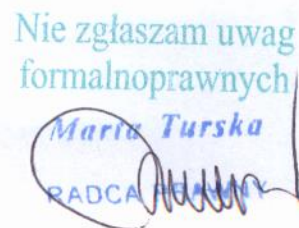 Nie zgłaszam uwag
formalnoprawnych
Marta Turska
RADCA PRAWNY